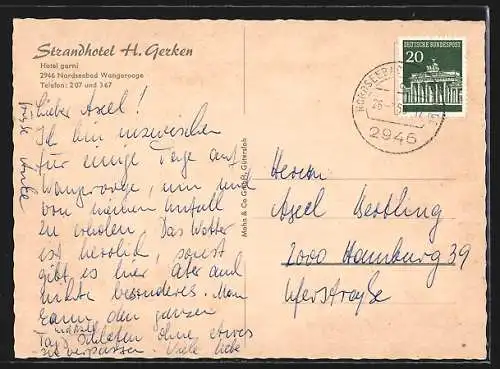 Strandhotel H. Gerken
Hotel garni
2946 Nordseebad Wangerooge
Telefon: 207 und 367
Lieber Axel!
Ich bin inzwischen
für einige Tage auf
Wangerooge, um mich
von meinem Unfall
zu erholen. Das Wetter
ist herrlich, sonst
gibt es hier aber auch
nichts besonderes. Man
kann den ganzen
Tag schlafen ohne etwas
zu verpassen. Viele liebe
Grüße Anke
Mohn & Co GmbH, Gütersloh
DEUTSCHE BUNDESPOST
20
NORDSEEBAD
2946
Herrn
Axel Westling
2000 Hamburg 39
Uferstraße